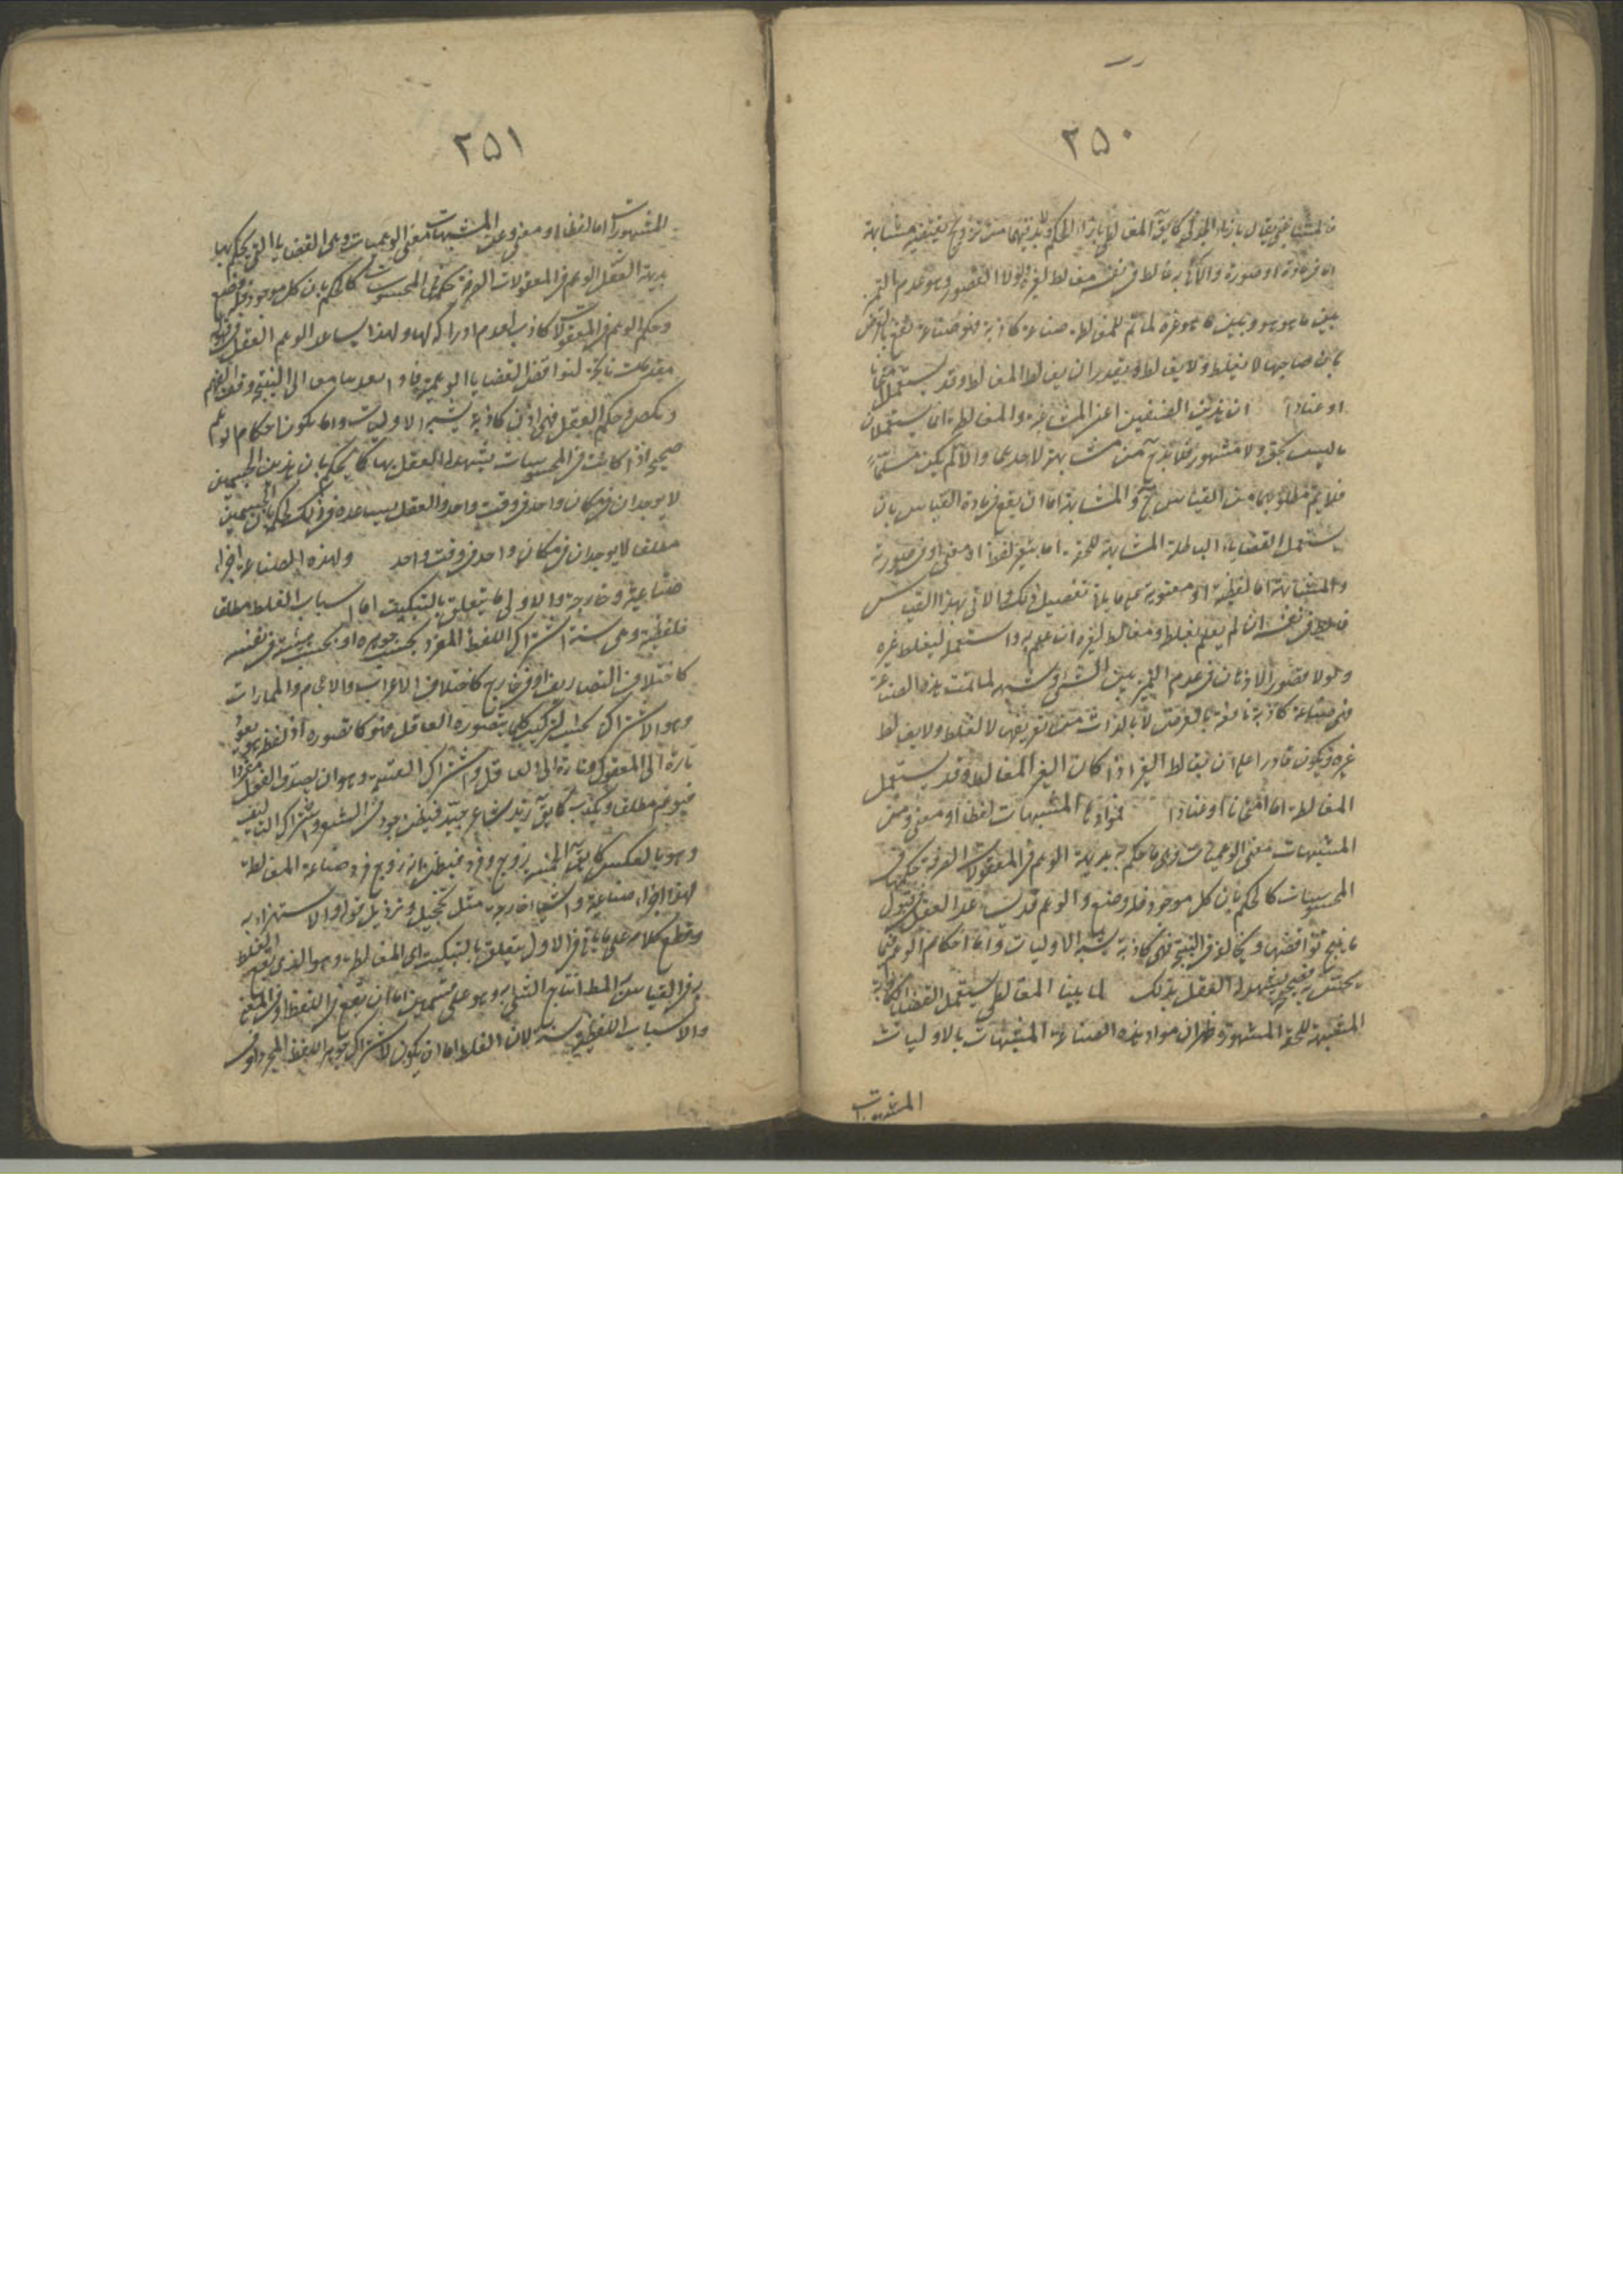 ٢٥٠
فالمشاغبى يقال بازاء الجدلى كما يق المغالطى بازاء الحكيم ولابد فيهما من ترويج يقتضيه مشابهة
اما فى مادة او صورة والآتى به غالط فى نفسه مغالط لغيره ولولا القصور وهو عدم التميز
بين ما هو هو وبين ما هو غيره لما تم للمغالط صناعة كاذبة فهو صناعة تنفع بالعرض
بان صاحبها لا يغلط ولا يغالط ويقدر ان يغالط المغالط وقد يستعمل امتحانا
او عنادا ان هذين الصنفين اعنى المشاغبة والمغالطة انما يستعملان
ما ليس بحق ولا مشهور فلابد من مشابهة لاحدهما والا لم يكن مسلما
فلا يتم مطلوبهما من القياس ح والمشابهة اما ان يقع فى مادة القياس بان
يستعمل القضايا الباطلة المشابهة للحقة اما بتغير لفظ او معنى او فى صورته
والمشابهة اما لفظية او معنوية على ما يأتى تفصيل ذلك والآتى بهذا القياس
غالط فى نفسه ان لم يعلم بغلطه ومغالط لغيره ان علم به واستعمله ليغلط غيره
ولولا قصور الاذهان فى عدم التميز بين الشئ وشبهه لما تمت هذه الصناعة
فهى صناعة كاذبة نافعة بالعرض لا بالذات من تعريفها لا الغلط ولا يغالط
غيره ويكون قادرا على ان يغالط الغير اذا كان الغير المغالط وقد يستعمل
المغالطة اما امتحانا او عنادا فموادها المشبهات لفظا او معنى ومن
المشبهات معنى الوهميات وهى ما حكم به بديهة الوهم فى المعقولات الصرفة حكمها فى
المحسوسات كالحكم بان كل موجود فله وضع والوهم قد يساعد العقل فى قبول
ما ينتج تناقضها ويخالفه فى النتيجة فهى كاذبة يشبه الاوليات واما احكام الوهم فيما
يحس به فصحيح يشهد له العقل بذلك لما بينا المغالطى يستعمل القضايا الكاذبة
المشبهة للحقة المشهورة ظهر ان مواد هذه الصناعة المشبهات بالاوليات
المشهورات
٢٥١
المشهورات اما لفظا او معنى وعن المشبهات معنى الوهميات وهى القضايا التى يحكم بها
بديهة العقل الوهم فى المعقولات الصرفة حكمه فى المحسوسات كالحكم بان كل موجود فله وضع
وحكم الوهم فى المعقولات كاذب لعدم ادراكه لها ولهذا يساعد الوهم العقل فى قبول
مقدمات ناتجة لنواقض القضايا الوهمية فاذا تعديا معا الى النتيجة وقف الوهم
ونكص وحكم العقل فهى اذن كاذبة يشبه الاوليات وانما يكون احكام الوهم
صحيحا اذا كانت فى المحسوسات يشهد له العقل بها كما يحكم بان هذين الجسمين
لا يوجدان فى مكان واحد فى وقت واحد والعقل يساعده فى ذلك الحكم بان الجسمين
مطلقا لا يوجدان فى مكان واحد فى وقت واحد ولهذه الصناعة اجزاء
صناعية وخارجة والاولى ما يتعلق بالتبكيت اما اسباب الغلط مطلقا
فلفظية وهى ستة اشتراك اللفظ المفرد بحسب جوهره او بحسب هيئته فى نفسه
كاختلاف التصاريف او من خارج كاختلاف الاعراب والاعجام والممارات
وهو الاشتراك بحسب التركيب كلما يتصوره العاقل فهو كما تصوره اذ لفظ هو يعود
تارة الى المعقول وتارة الى العاقل واشتراك القسمة وهو ان يصدق القول مفردا
فيتوهم مطلقا ويكذب كما يق زيد شاعر جيد فيظن جودته فى الشعر واشتراك التأليف
وهو بالعكس كما يق الخمسة زوج وفرد فيظن انه زوج فرد وصناعة المغالطة
لها اجزاء صناعية واشياء خارجة مثل تخجيل وترذيل قوله والاستهزاء به
وقطع كلامه على ما يأتى فالاول يتعلق بالتبكيت اى المغالطة وهو الذى يقع الغلط
به فى القياس المط انتاج الشئ به وهو على قسمين اما ان يقع فى اللفظ او فى المعنى
والاسباب اللفظية ستة لان الغلط اما ان يكون لاشتراك جوهر اللفظ المجرد او فى